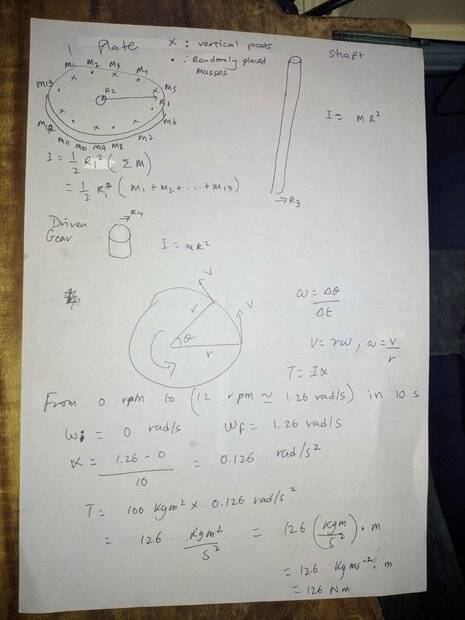 1 plate
x : vertical posts
• : Randomly placed
masses
shaft
R2
R1
M5
M6
M13
I = 1/2 R1² ( Σ M )
= 1/2 R1² ( M1 + M2 + . . . + M13 )
I = m R²
→ R3
Driven
Gear
→ R4
I = mR²
V
V
r
θ
r
ω = Δθ / Δt
V = rω , ω = v/r
T = Iα
From 0 rpm to (12 rpm ≃ 1.26 rad/s) in 10 s
ωi = 0 rad/s ωf = 1.26 rad/s
α = (1.26 - 0) / 10 = 0.126 rad/s²
T = 100 kgm² x 0.126 rad/s²
= 12.6 kgm²/s² = 12.6 (kgm/s²) . m
= 12.6 kgms⁻² . m
= 12.6 Nm